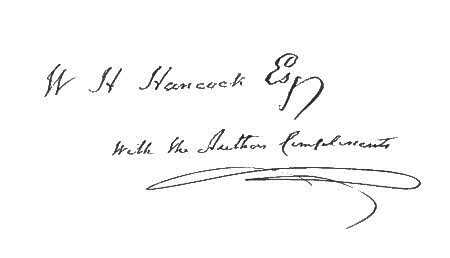 W H Hancock Esq
With the Author Compliments